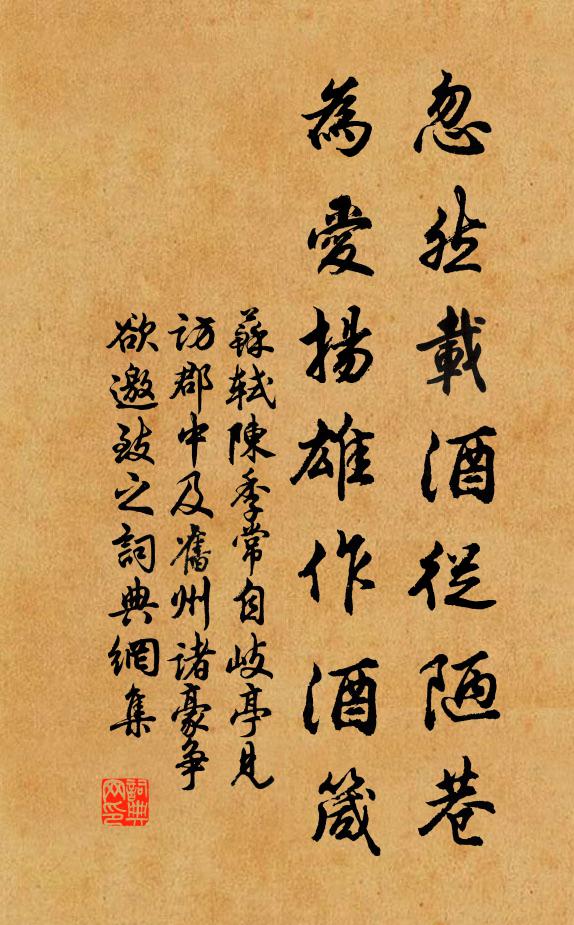 忽然載酒從陋巷
為愛揚雄作酒箴
蘇軾陳季常自岐亭見
訪郡中及舊州諸豪爭
欲邀致之詞典網集
詞典
网印